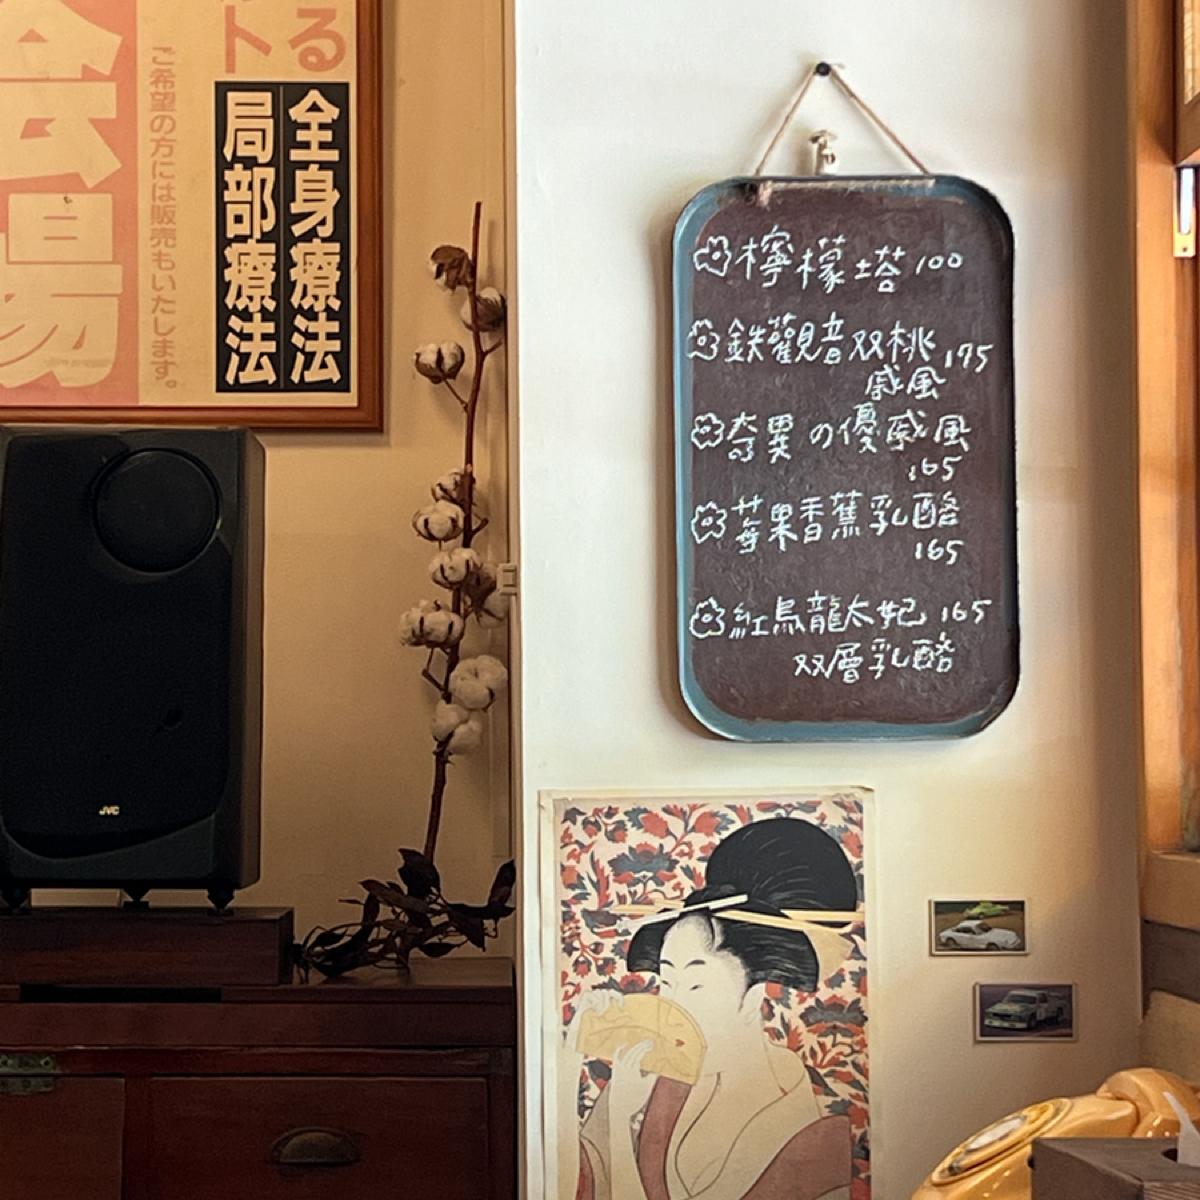 会場
ご希望の方には販売もいたします。
ト
る
全身療法
局部療法
JVC
檸檬塔 100
鉄觀音双桃 175
戚風
奇異の優戚風
165
莓果香蕉乳酪
165
紅烏龍太妃 165
双層乳酪